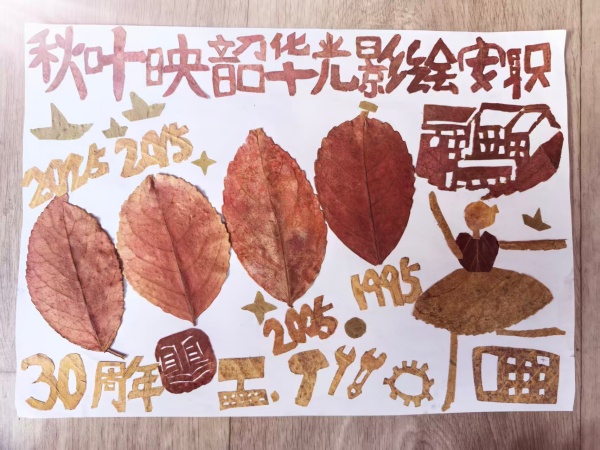 秋叶映韶华光影绘安职
2025 2015
1995
2005
30周年